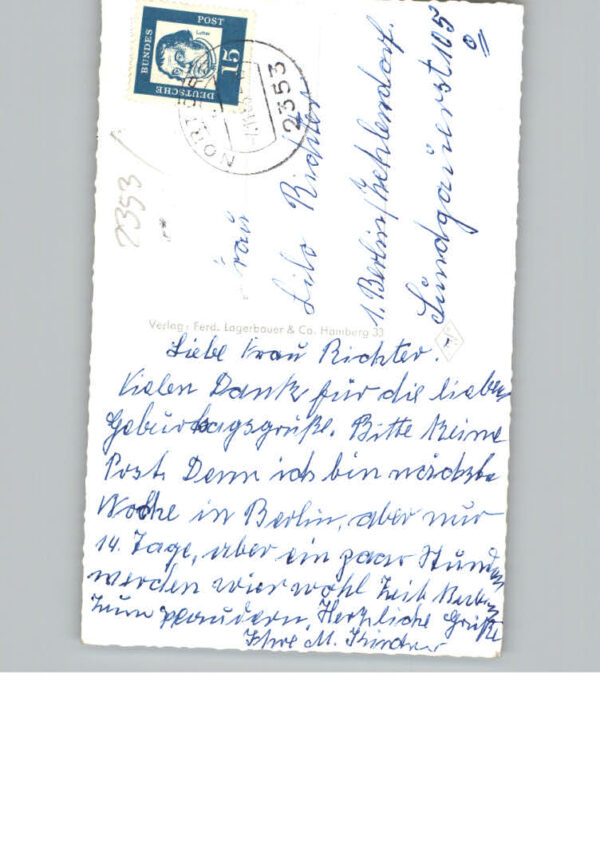 DEUTSCHE
BUNDES
POST
15
Luther
NORTORF
2353
2353
Frau
Lilo Richter
1. Berlin/Zehlendorf.
Sundgauerst 105
Verlag: Ferd. Lagerbauer & Co. Hamburg 33
Liebe Frau Richter.
Vielen Dank für die lieben
Geburtsagsgrüße. Bitte keine
Post. Denn ich bin nächste
Woche in Berlin, aber nur
14. Tage, aber ein paar Stunden
werden wier wohl Zeit
zum plaudern. Herzliche Grüße
Ihre M.